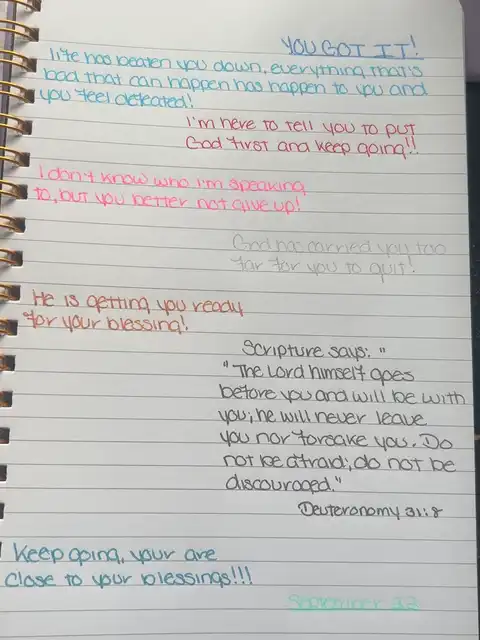 YOU GOT IT!
life has beaten you down, everything that's
bad that can happen has happen to you and
you feel defeated!
I'm here to tell you to put
God first and keep going!!
I don't know who I'm speaking
to, but you better not give up!
God has carried you too
far for you to quit!
He is getting you ready
for your blessing!
Scripture says: "
" The Lord himself goes
before you and will be with
you; he will never leave
you nor forsake you. Do
not be afraid; do not be
discouraged."
Deuteronomy 31:8
Keep going, your are
close to your blessings!!!
September 22